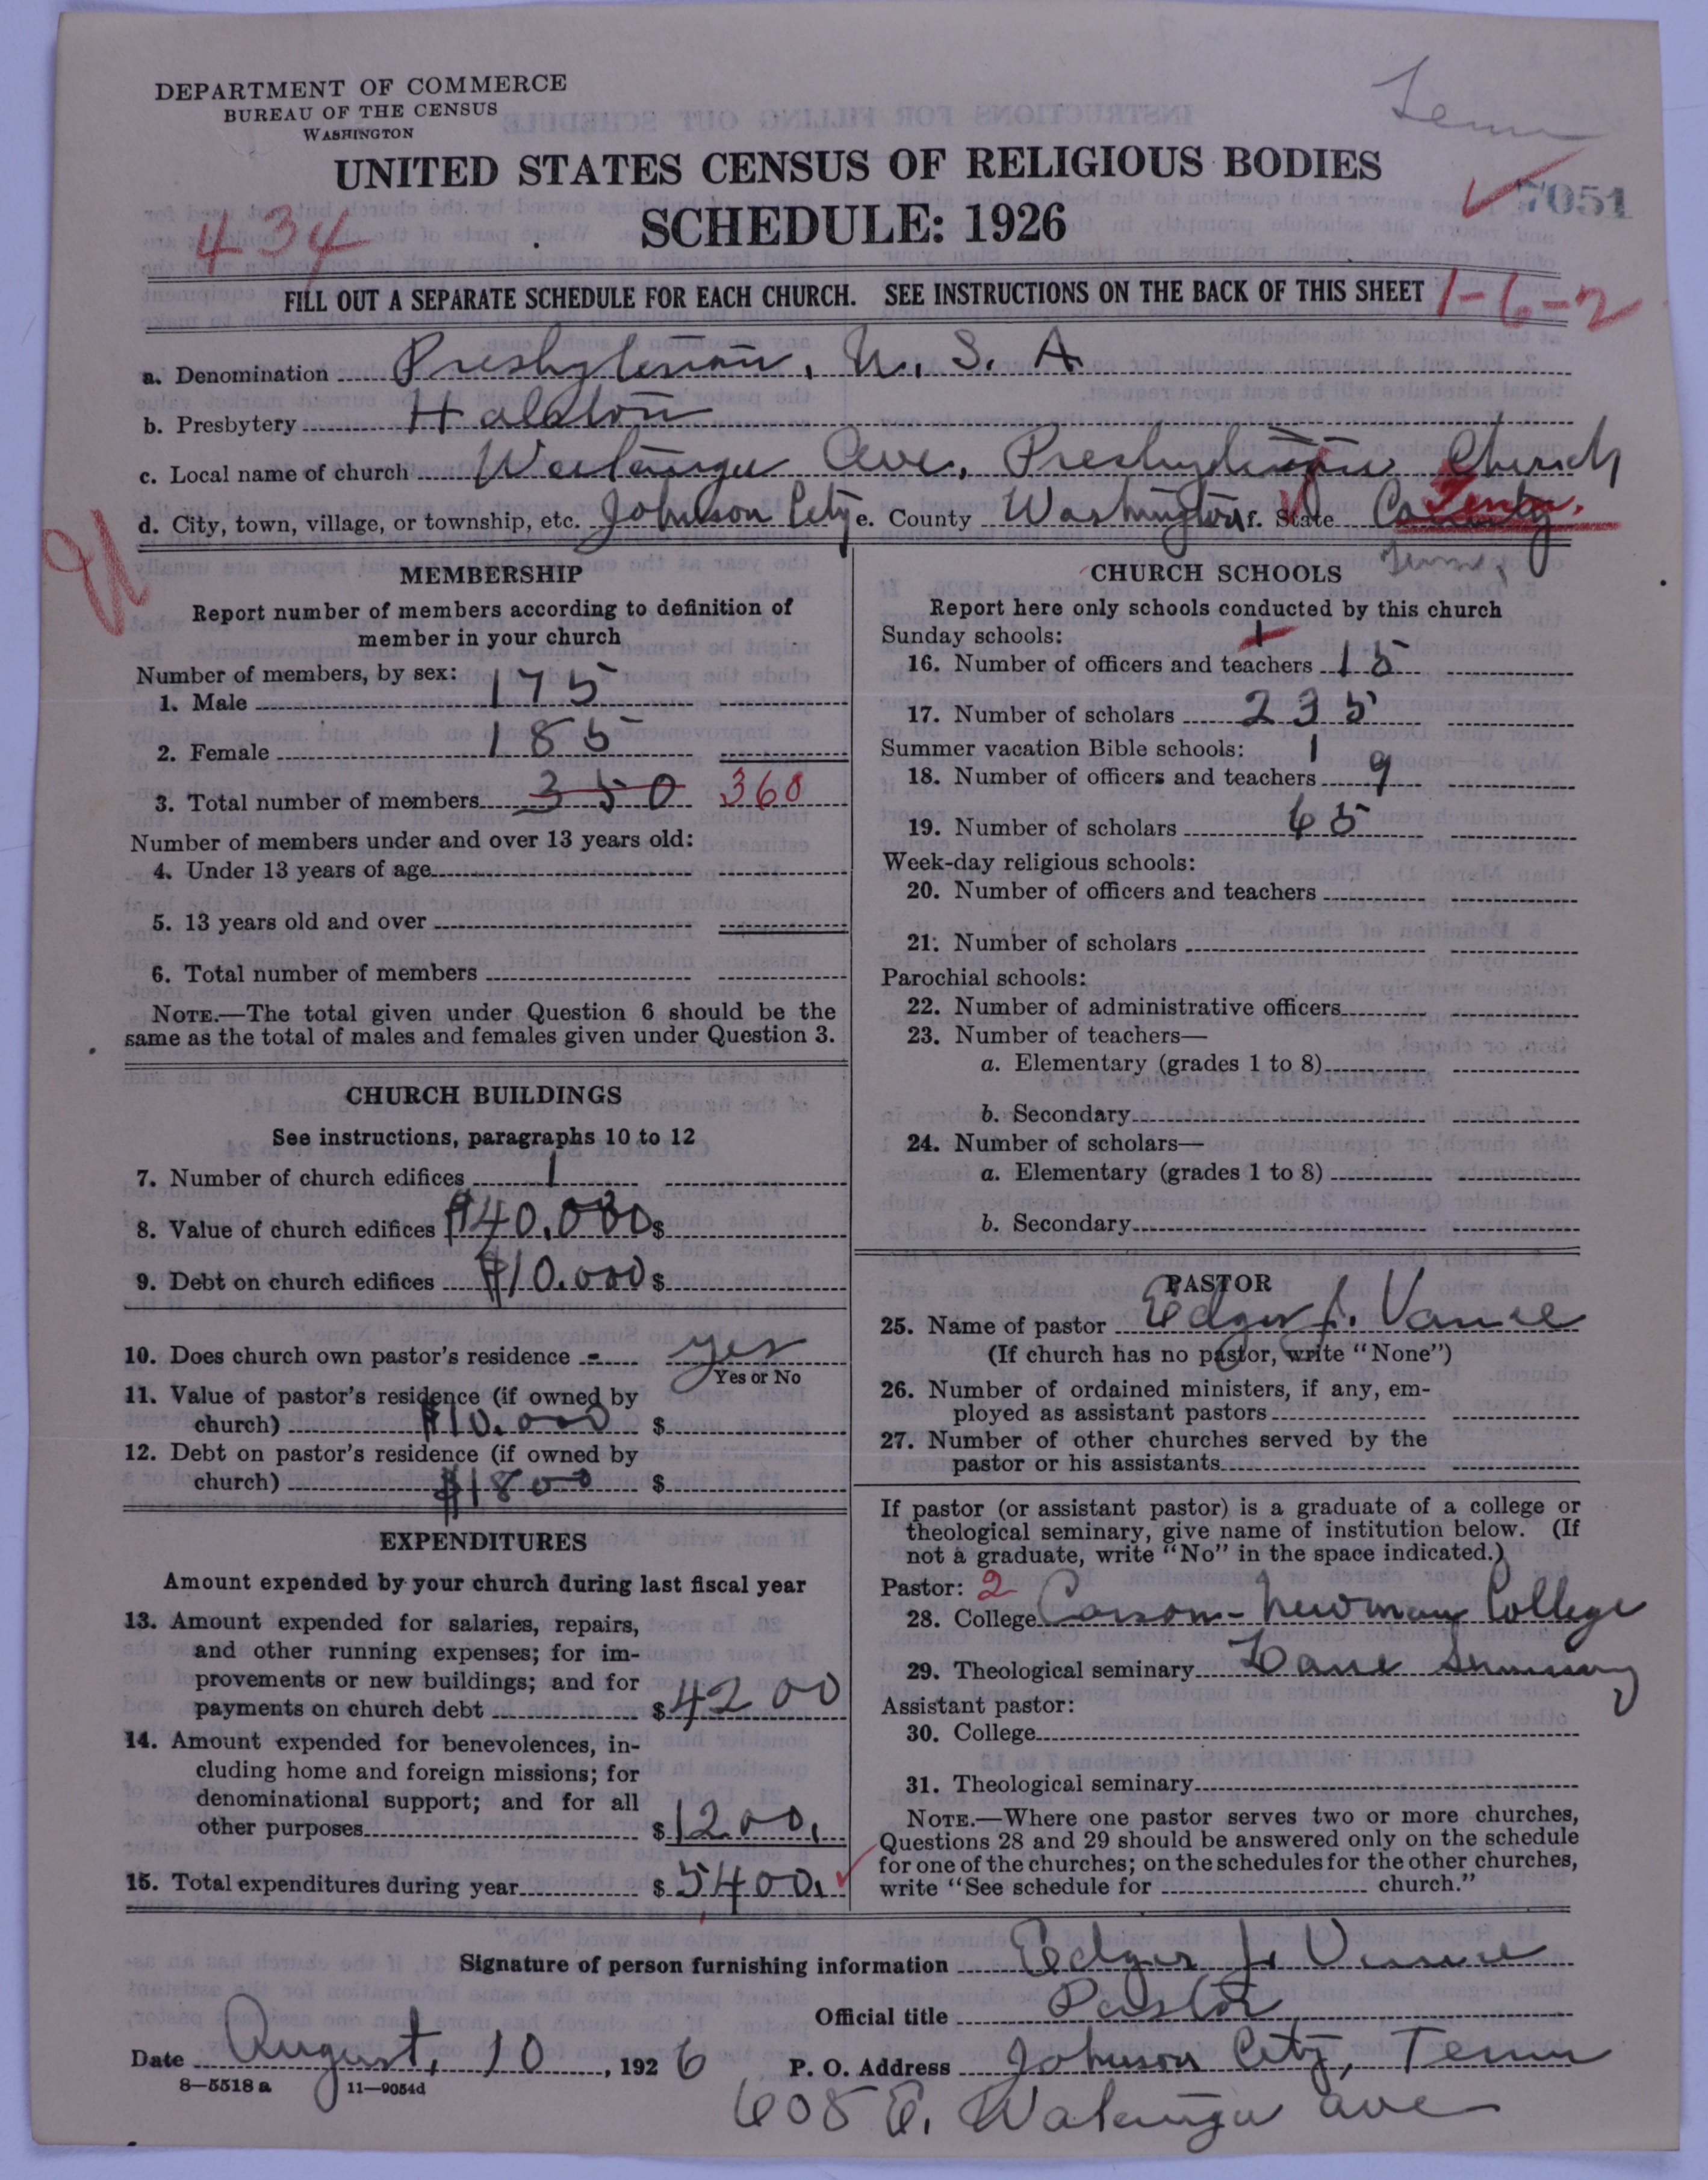 Tenn
DEPARTMENT OF COMMERCE
BUREAU OF THE CENSUS
WASHINGTON
UNITED STATES CENSUS OF RELIGIOUS BODIES
7051
434
SCHEDULE: 1926
FILL OUT A SEPARATE SCHEDULE FOR EACH CHURCH. SEE INSTRUCTIONS ON THE BACK OF THIS SHEET 1-6-2
a. Denomination Presbyterian, U. S. A
b. Presbytery Holston
c. Local name of church Watauga Ave, Presbyterian Church
d. City, town, village, or township, etc. Johnson City e. County Washington f. State Tenn.
Tenn
MEMBERSHIP
Report number of members according to definition of
member in your church
Number of members, by sex:
1. Male 175
2. Female 185
3. Total number of members 350 360
Number of members under and over 13 years old:
4. Under 13 years of age
5. 13 years old and over
6. Total number of members
NOTE.—The total given under Question 6 should be the
same as the total of males and females given under Question 3.
CHURCH BUILDINGS
See instructions, paragraphs 10 to 12
7. Number of church edifices 1
8. Value of church edifices $40,000 $
9. Debt on church edifices $10.000 $
10. Does church own pastor's residence yes
Yes or No
11. Value of pastor's residence (if owned by
church) $10.000 $
12. Debt on pastor's residence (if owned by
church) $1800 $
EXPENDITURES
Amount expended by your church during last fiscal year
13. Amount expended for salaries, repairs,
and other running expenses; for im-
provements or new buildings; and for
payments on church debt $4200
14. Amount expended for benevolences, in-
cluding home and foreign missions; for
denominational support; and for all
other purposes $1200.
15. Total expenditures during year $5400.
CHURCH SCHOOLS
Report here only schools conducted by this church
Sunday schools: 1
16. Number of officers and teachers 15
17. Number of scholars 235
Summer vacation Bible schools: 1
18. Number of officers and teachers 9
19. Number of scholars 65
Week-day religious schools:
20. Number of officers and teachers
21. Number of scholars
Parochial schools:
22. Number of administrative officers
23. Number of teachers—
a. Elementary (grades 1 to 8)
b. Secondary
24. Number of scholars—
a. Elementary (grades 1 to 8)
b. Secondary
PASTOR
25. Name of pastor Edgar J. Vance
(If church has no pastor, write "None")
26. Number of ordained ministers, if any, em-
ployed as assistant pastors
27. Number of other churches served by the
pastor or his assistants
If pastor (or assistant pastor) is a graduate of a college or
theological seminary, give name of institution below. (If
not a graduate, write "No" in the space indicated.)
Pastor: 2
28. College Carson-Newman College
29. Theological seminary Lane Seminary
Assistant pastor:
30. College
31. Theological seminary
NOTE.—Where one pastor serves two or more churches,
Questions 28 and 29 should be answered only on the schedule
for one of the churches; on the schedules for the other churches,
write "See schedule for church."
Signature of person furnishing information Edgar J. Vance
Official title Pastor
Date August, 10, 1926 P. O. Address Johnson City, Tenn
8—5518 a 11—9054d
608 E. Watauga ave